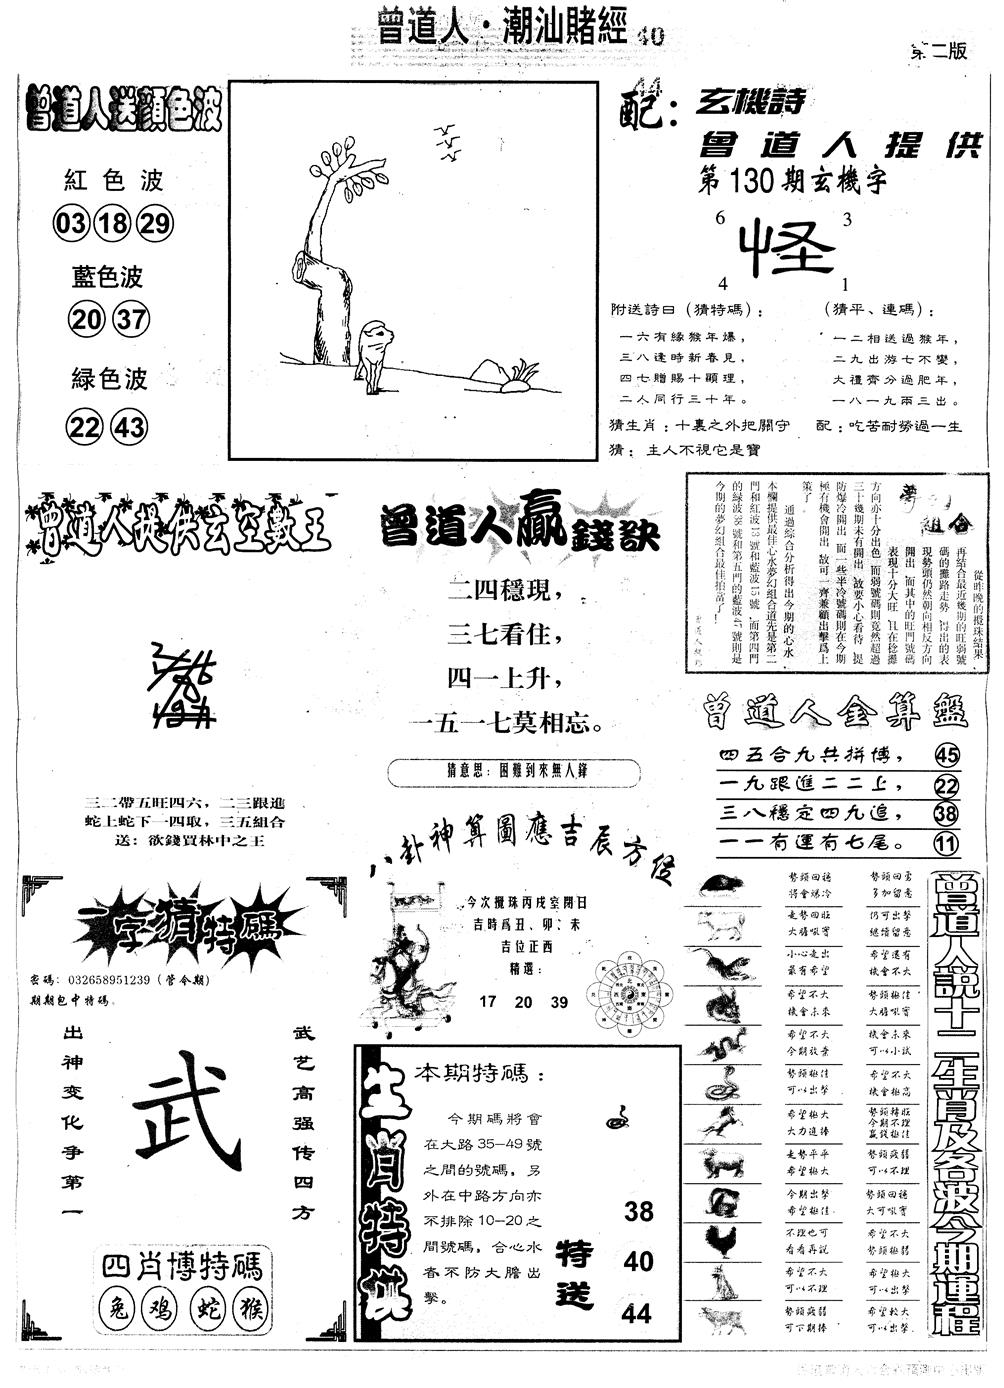 曾道人·潮汕賭經 40
第二版
曾道人送顔色波
紅色波
03 18 29
藍色波
20 37
緑色波
22 43
44
配：玄機詩
曾道人提供
第130期玄機字
6 3
怪
4 1
附送詩曰（猜特碼）：
一六有緣猴年爆，
三八逢時新春見，
四七贈賜十顯理，
二人同行三十年。
（猜平、連碼）：
一二相送過猴年，
二九出游七不變，
大禮齊分過肥年，
一八一九兩三出。
猜生肖：十裏之外把關守
配：吃苦耐勞過一生
猜：主人不視它是寶
曾道人提供玄空數王
三二帶五旺四六，二三跟進
蛇上蛇下一四取，三五組合
送：欲錢買林中之王
曾道人贏錢訣
二四穩現，
三七看住，
四一上升，
一五一七莫相忘。
猜意思：困難到來無人鋒
夢 組合
從昨晚的攪珠結果，
再結合最近幾期的旺弱號
碼的攤路走勢，得出的表
現勢頭仍然朝向相反方向
開出，而其中的旺門號碼
表現十分大旺，且在捻攤
方向亦十分出色，而弱號碼則竟然超過
三十幾期未有開出，故要小心看待，提
防爆冷開出，而一些半冷號碼則在今期
極有機會開出，故可一齊兼顧出擊爲上
策了。
通過綜合分析得出今期的心水，
本欄提供最佳心水夢幻組合道先是第二
門和紅波13號和藍波15號，而第四門
的緑波38號和第五門的藍波47號則是
今期的夢幻組合最佳拍富了！
曾道人金算盤
四五合九共拼博， 45
一九跟進二二上， 22
三八穩定四九追， 38
一一有運有七尾。 11
八卦神算圖應吉辰方位
今次攪珠丙戌室閉日
吉時爲丑、卯、未
吉位正西
精選：
17 20 39
一字猜特碼
密碼：032658951239（管令期）
期期包中特碼。
出神变化争第一
武
武艺高强传四方
四肖博特碼
兔 鸡 蛇 猴
生肖特供
本期特碼：
今期碼將會
在大路35—49號
之間的號碼，另
外在中路方向亦
不排除10—20之
間號碼，合心水
者不防大膽出
擊。
特送
38
40
44
曾道人説十二生肖及各波今期運程
勢頭回穩 將會爆冷
勢頭回勇 多加留意
走勢回旺 大膽吼實
仍可出擊 繼續留意
小心走出 最有希望
希望還有 機會不大
希望不大 機會未來
勢頭極佳 大膽吼實
希望不大 今期放棄
機會未來 可以小試
勢頭極佳 可以出擊
希望不大 機會極高
希望極大 大力追捧
勢頭轉旺 今期不理 贏錢極佳
走勢平平 希望極大
勢頭疲弱 可以不理
今期出擊 希望極佳
勢頭回穩 大可吼實
不理也可 看看再説
希望不大 勢頭極弱
希望不大 可以不理
希望極大 可以出擊
勢頭疲弱 可下期捧
希望較大 可以出擊